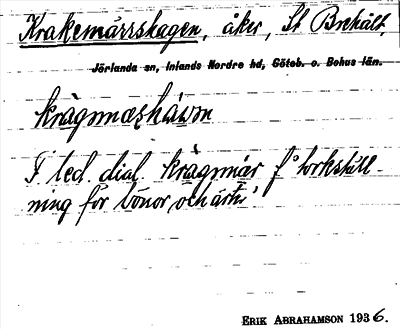 Krakemärrshagen, åker, St Brehält,
Jörlanda sn, Inlands Nordre hd, Göteb. o. Bohus län.
krȧgmæshȧwn
F. led. dial. krȧgmär f. 'torkställ-
ning för bönor och ärter'
ERIK ABRAHAMSON 1936.